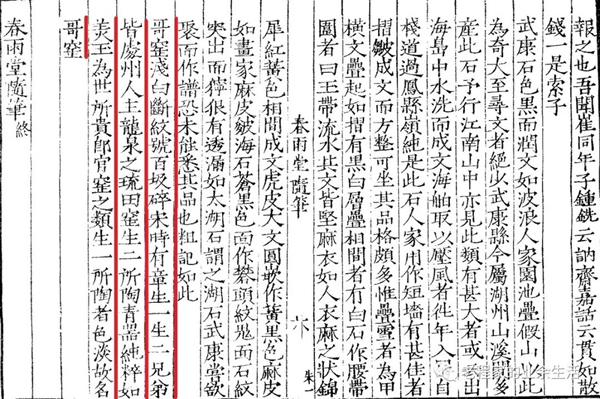 報之也吾聞崔同年子鍾銑云訥齋嘉話云貫如散
錢一是索子
武康石色黑而潤文如波浪人家園池疊假山以此
為奇大至尋丈者絕以武康縣今屬湖州山溪間多
產此石予行江南山中亦見此類有甚大者或出
海島中水洗而成文海舶取以壓風者徃年入自
棧道過鳳縣嶺純是此石人家用作短墻有甚佳者
橫文疊起如摺有黑白層疊相間者有白石作腰帶
摺皺成文而方整可坐其品格頗多惟疊雪者為甲
圍者曰玉帶流水其文皆堅麻衣如人衣麻之狀錦
春雨堂隨筆 六 朱一
犀紅黃色相間成文虎皮大文圓嵌作黃黑色麻皮
如畫家麻皮皴海石蒼黑色面作攀頭紋鬼面石紋
突出而獰狠有透漏如太湖石謂之湖石武康嘗欲
聚而作譜恐未能悉其品也粗記如此
哥窑淺白斷紋號百圾碎宋時有章生一生二兄弟
皆處州人主龍泉之琉田窑生二所陶青器純粹如
美玉為世所貴即官窑之類生一所陶者色淡故名
哥窑
春雨堂隨筆終